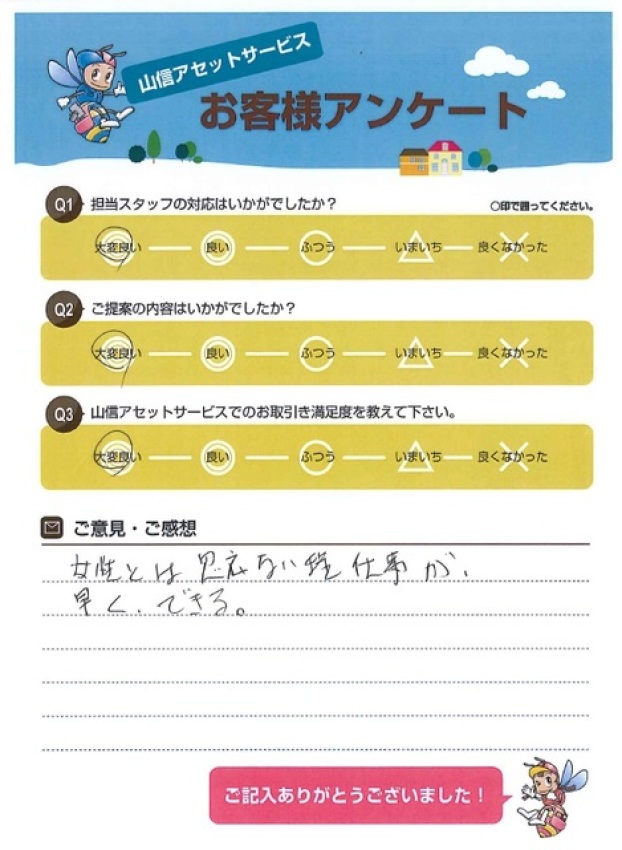 山信アセットサービス
お客様アンケート
Q1 担当スタッフの対応はいかがでしたか？ ○印で囲ってください。
大変良い 良い ふつう いまいち 良くなかった
Q2 ご提案の内容はいかがでしたか？
大変良い 良い ふつう いまいち 良くなかった
Q3 山信アセットサービスでのお取引き満足度を教えて下さい。
大変良い 良い ふつう いまいち 良くなかった
ご意見・ご感想
女性とは思えない程仕事が、
早く、できる。
ご記入ありがとうございました！